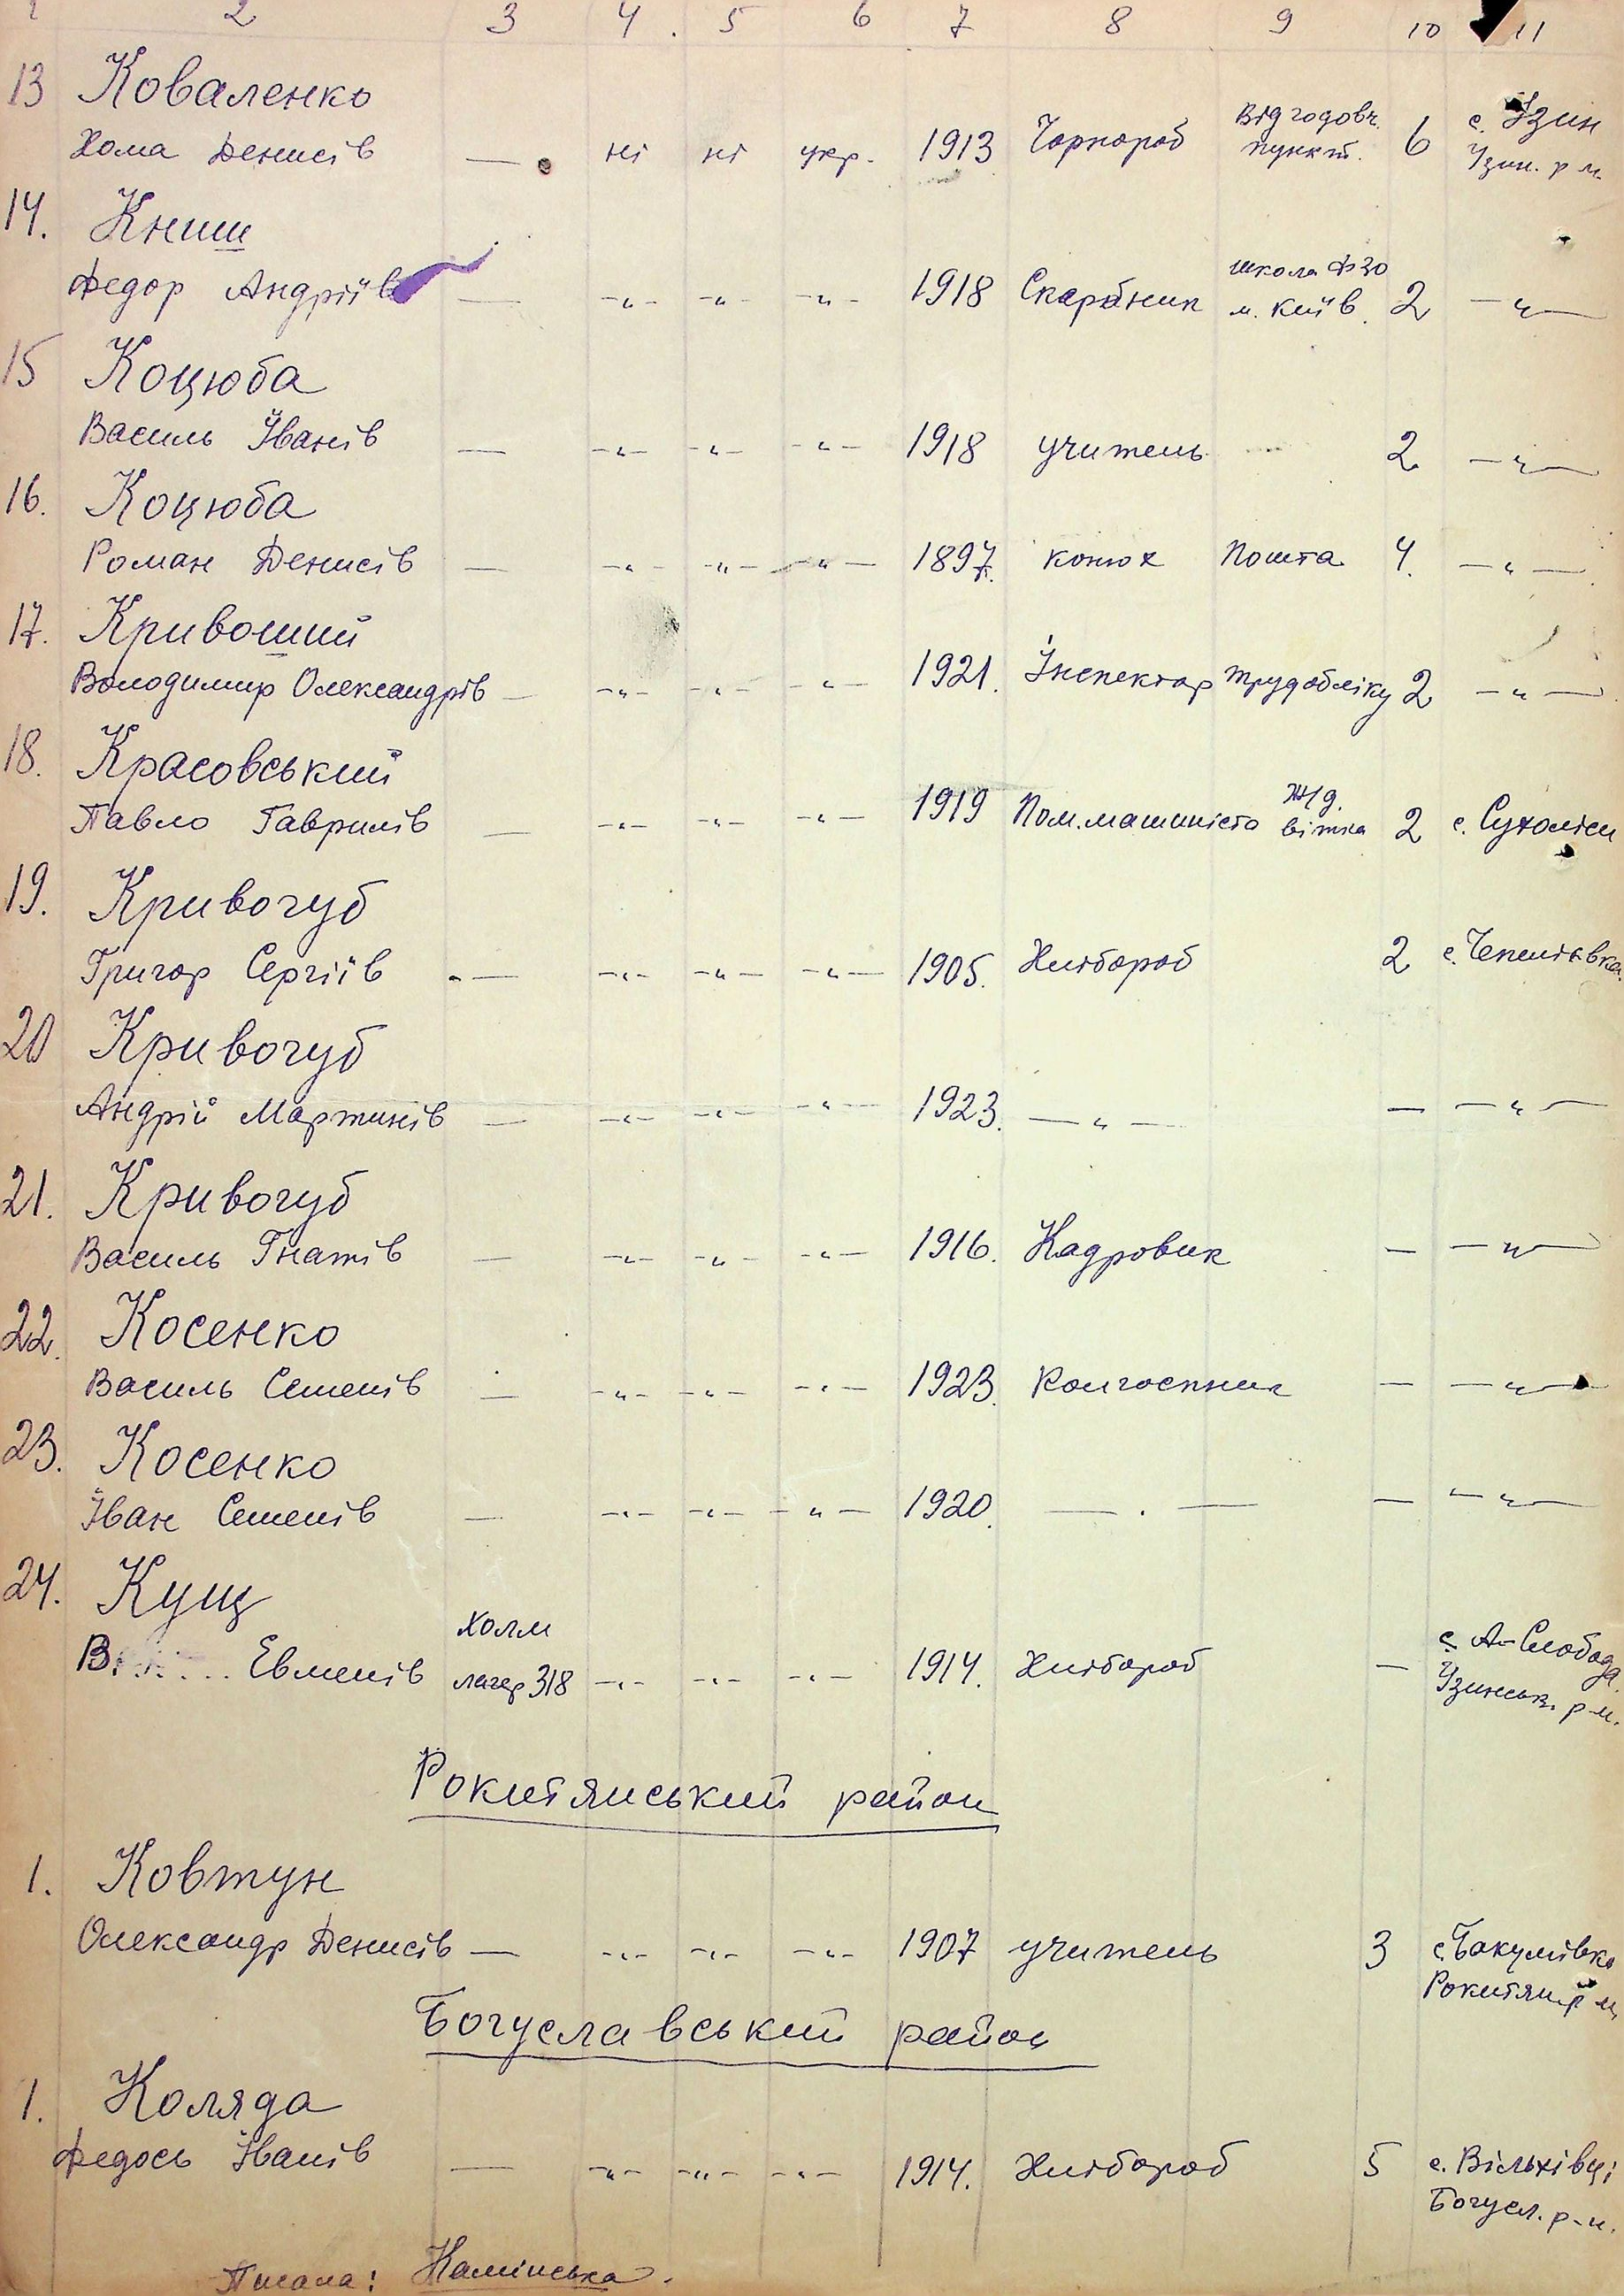 1 2 3 4. 5 6 7 8 9 10 11
13 Коваленко
Хома Денисів — ні ні укр. 1913 Чорнороб Відгодовч. пункт. 6 с. Узин Узин. р-н.
14. Книш
Федор Андріїв — -„- -„- -„- 1918 Скарбник школа ФЗО м. Київ. 2 -„-
15 Коцюба
Василь Іванів — -„- -„- -„- 1918 учитель 2 -„-
16. Коцюба
Роман Денисів — -„- -„- -„- 1897. конюх Пошта 4. -„-
17. Кривоший
Володимир Олександрів — -„- -„- -„- 1921. Інспектор трудобліку 2 -„-
18. Красовський
Павло Гаврилів — -„- -„- -„- 1919 Пом.машиніста Ж/д. вітка 2 с. Сухоліси
19. Кривогуб
Григор Сергіїв — -„- -„- -„- 1905. Хлібороб 2 с. Чепиліївка.
20 Кривогуб
Андрій Мартинів — -„- -„- -„- 1923. -„- — -„-
21. Кривогуб
Василь Гнатів — -„- -„- -„- 1916. Кадровик — -„-
22. Косенко
Василь Семенів — -„- -„- -„- 1923. Колгоспник — -„-
23. Косенко
Іван Семенів — -„- -„- -„- 1920. -„- — -„-
24. Кущ
Евменів Холм лагер 318 -„- -„- -„- 1914. Хлібороб — с. А-Слобода. Узинськ. р-н.
Рокитянський район
1. Ковтун
Олександр Денисів — -„- -„- -„- 1907 учитель 3 с. Бакумівка Рокитян. р-н
Богуславський район
1. Коляда
Федось Іванів — -„- -„- -„- 1914. Хлібороб 5 с. Вільхівці Богусл. р-н.
Писала: Камінська.